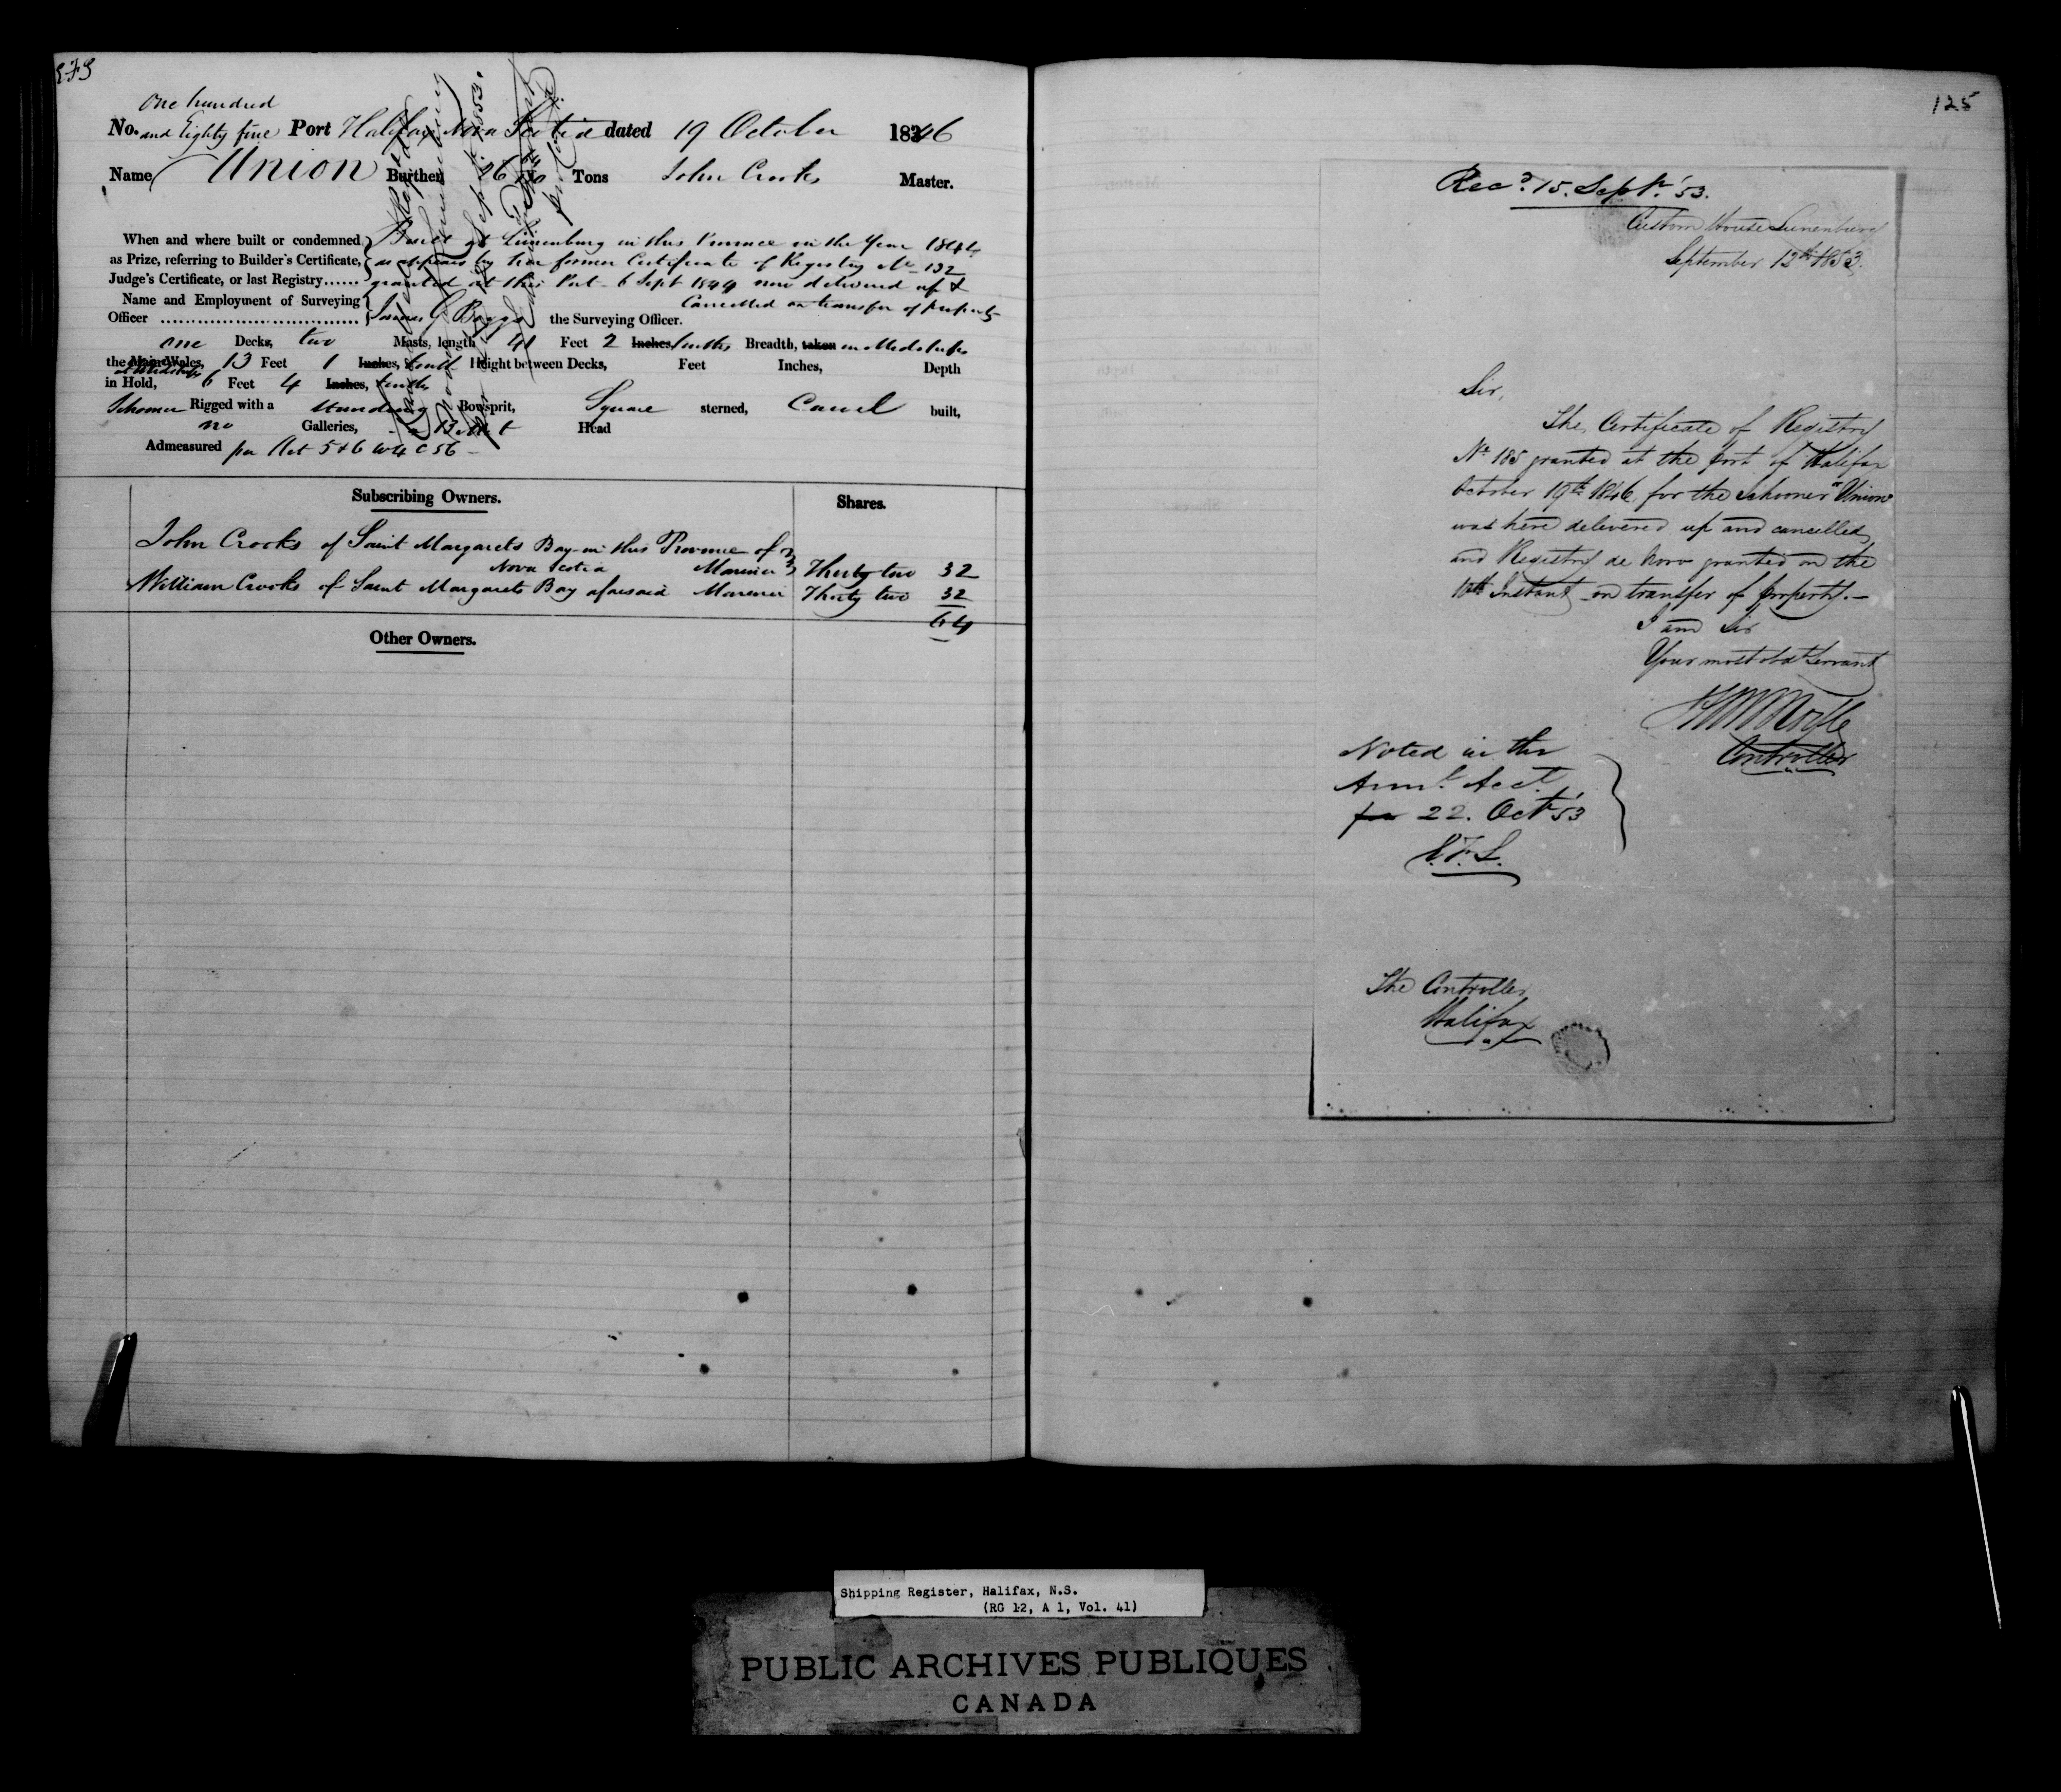 One hundred
No. and Eighty five Port Halifax Nova Scotia dated 19 October 1846
Name Union Burthen Tons John Crooks Master.
When and where built or condemned Built at Lunenburg in this Province in the Year 1844
as Prize, referring to Builder's Certificate, as appears by her former Certificate of Registry No 132
Judge's Certificate, or last Registry...... granted at this Port 6 Sept 1844 now delivered up &
Cancelled on transfer of property
Name and Employment of Surveying
Officer James G Boggs the Surveying Officer.
one Decks, two Masts, length 41 Feet 2 Inches, tenths Breadth, taken in Midships
the Main Wales, 13 Feet 1 Inches, tenth Height between Decks, Feet Inches, Depth
at Midships
in Hold, 6 Feet 4 Inches, tenths
Schooner Rigged with a Standing Bowsprit, Square sterned, Carvel built,
no Galleries, Head
Admeasured per Act 5 & 6 W 4 C 56 -
Subscribing Owners. Shares.
John Crooks of Saint Margarets Bay in this Province of
Nova Scotia Mariner Thirty two 32
William Crooks of Saint Margarets Bay aforesaid Mariner Thirty two 32
64
Other Owners.
125
Recd. 15. Septr. '53.
Custom House Lunenburg
September 12th 1853.
Sir,
The Certificate of Registry
No 185 granted at the port of Halifax
October 19th 1846 for the Schooner "Union"
was here delivered up and cancelled
and Registry de novo granted on the
10th Instant on transfer of property.—
I am Sir
Your most obdt Servant
Controller
Noted in the
Annl. Acct.
for 22. Oct '53
E.F.S.
The Controller
Halifax
Shipping Register, Halifax, N.S.
(RG 12, A 1, Vol. 41)
PUBLIC ARCHIVES PUBLIQUES
CANADA